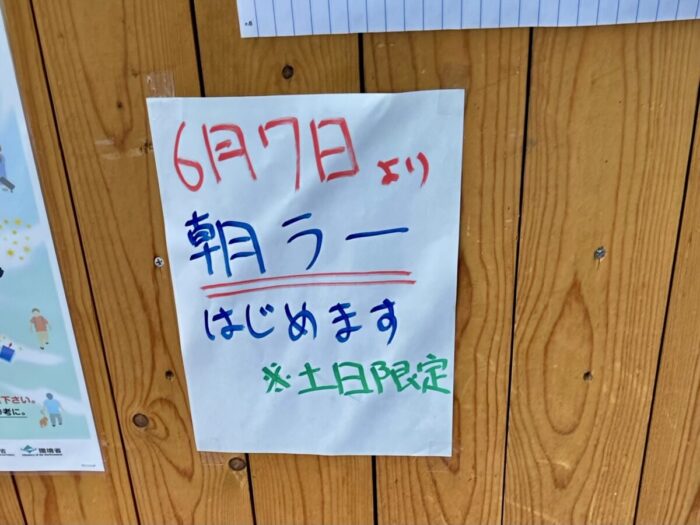 6月7日より
朝ラー
はじめます
※土日限定
下さい。
考に。
環境省